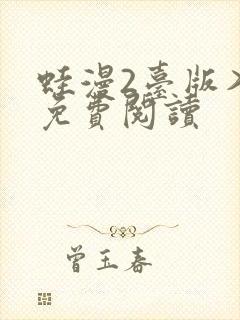 蛙漫2臺版入
免費閱讀
曾玉春